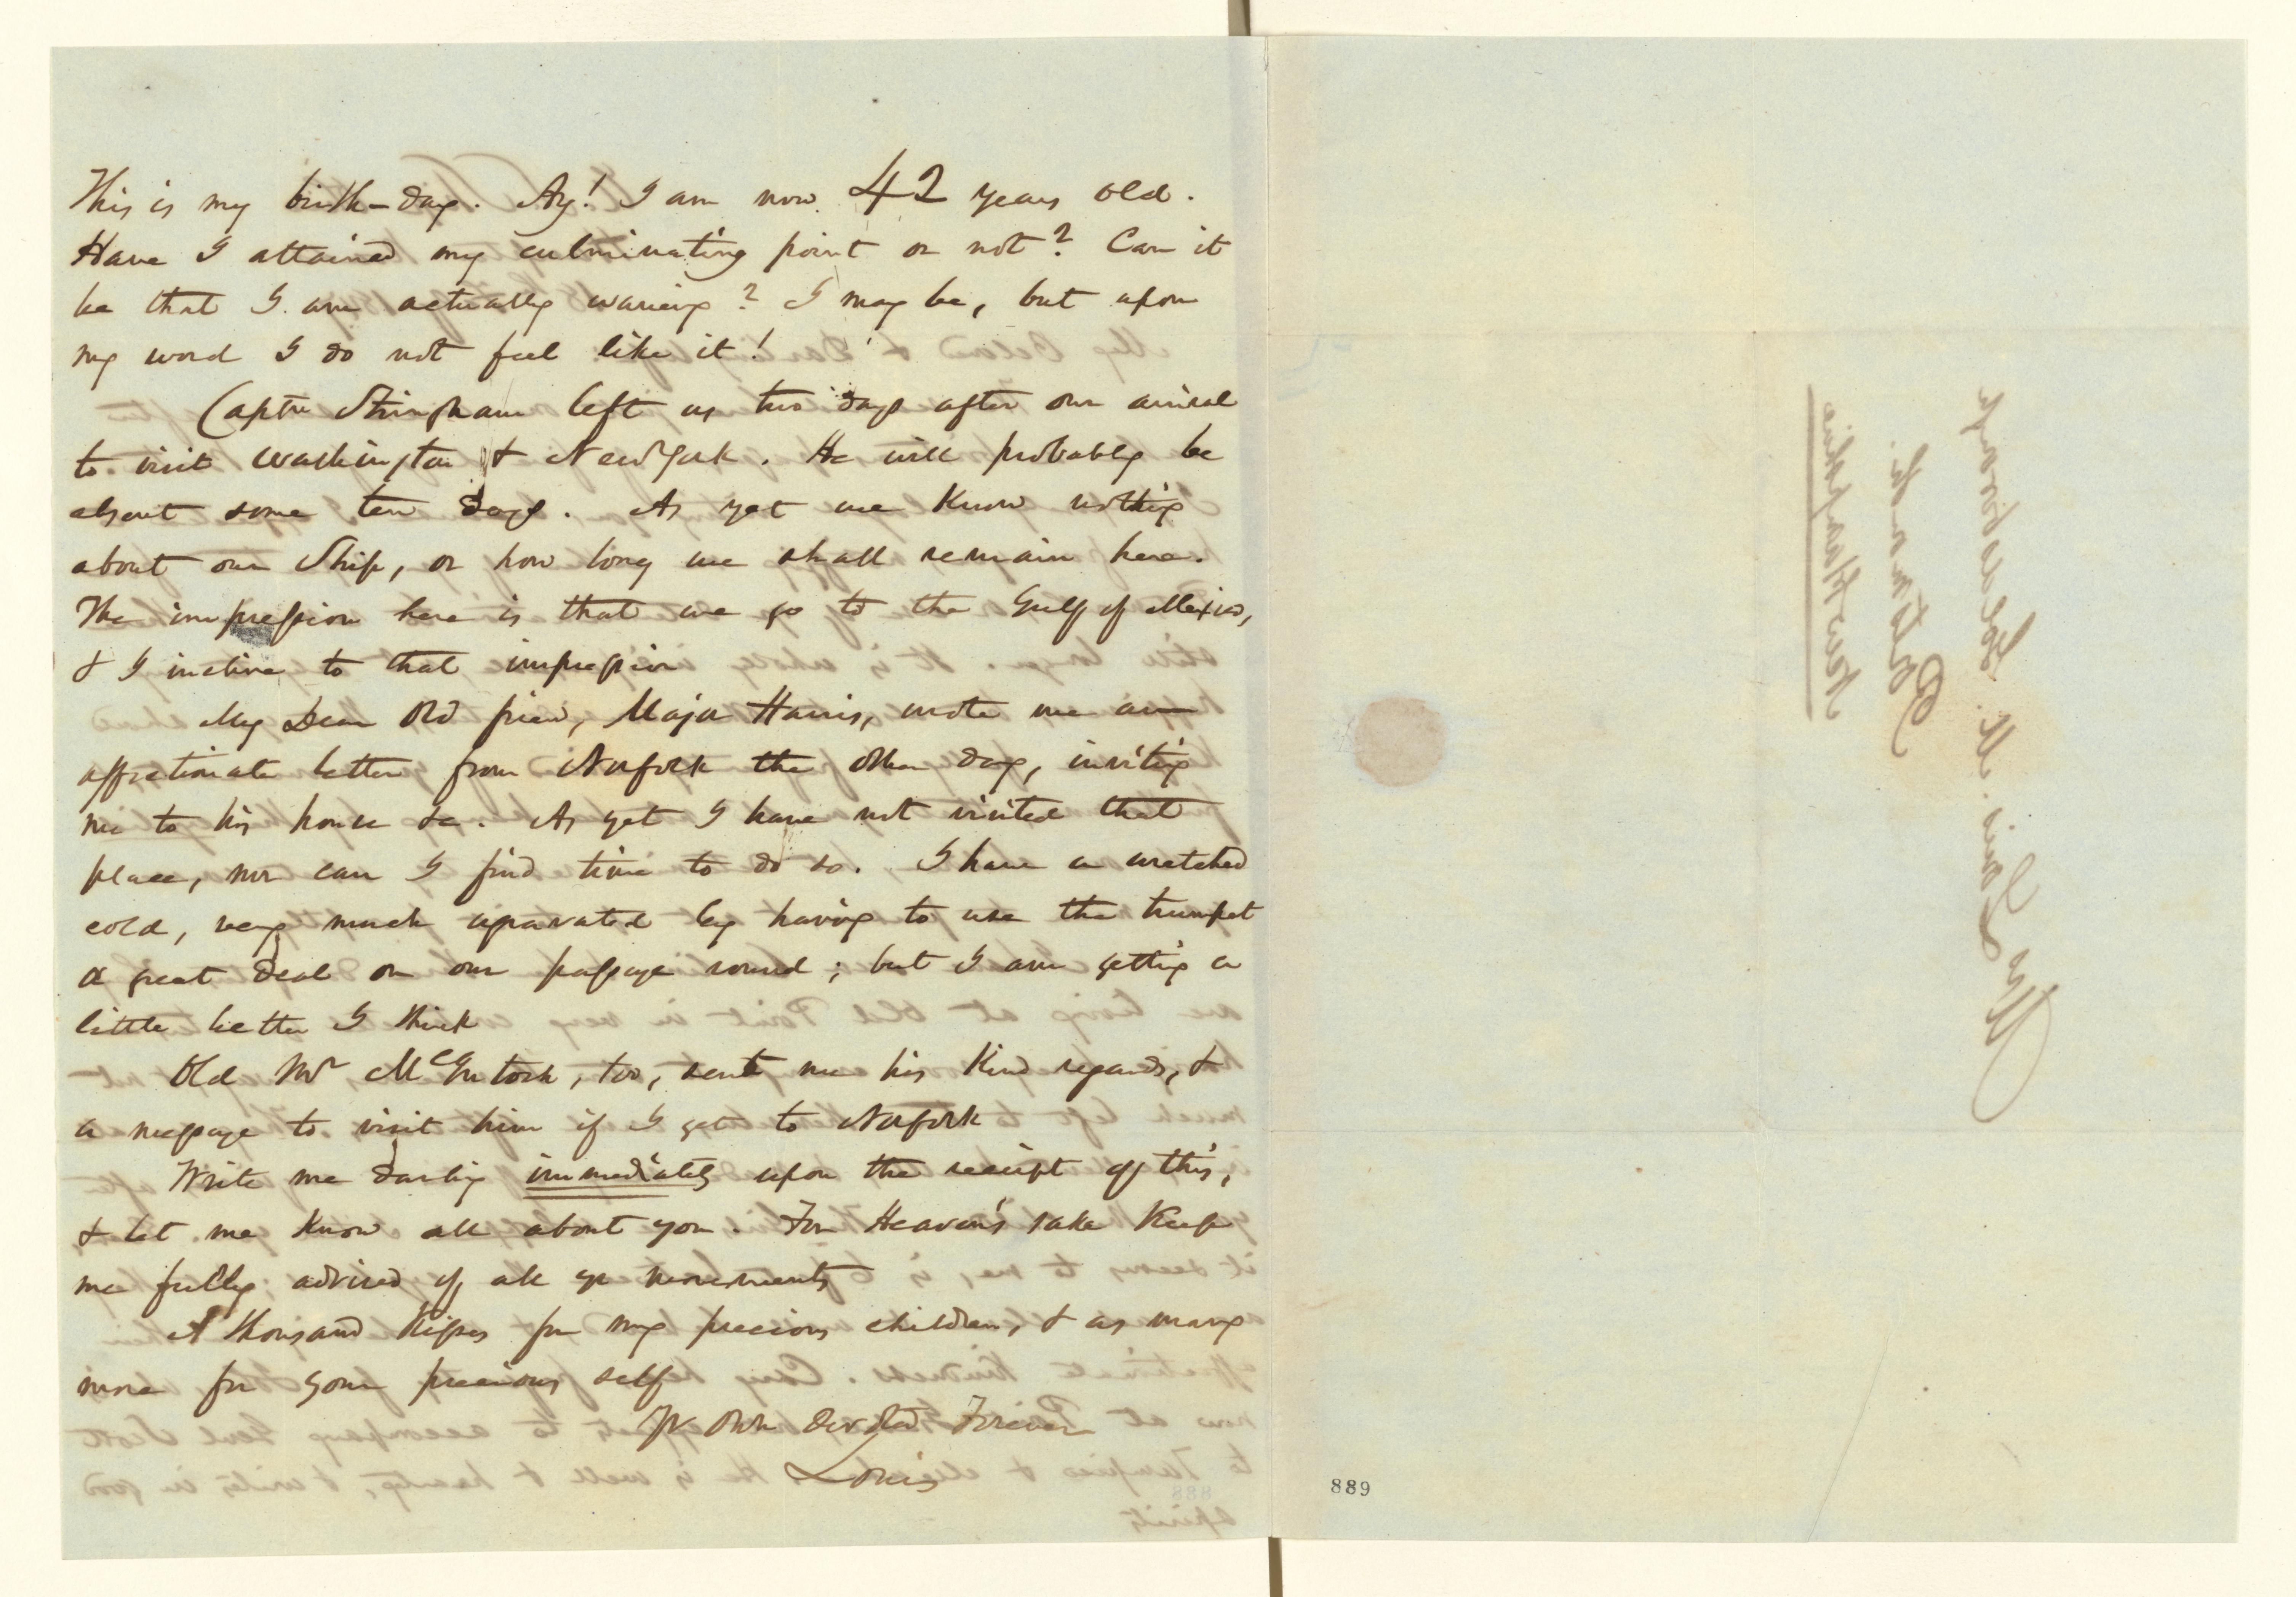 This is my birth-day. Ay! I am now 42 years old.
Have I attained my culminating point or not? Can it
be that I am actually waning? I may be, but upon
my word I do not feel like it!
Captn Stringham left us two days after our arrival
to visit Washington & New York. He will probably be
absent some ten days. As yet we know nothing
about our Ship, or how long we shall remain here.
The impression here is that we go to the Gulf of Mexico,
& I incline to that impression
My Dear Old friend, Major Harris, wrote me an
affectionate letter from Norfolk the other day, inviting
me to his house &c. As yet I have not visited that
place, nor can I find time to do so. I have a wretched
cold, very much agravated by having to use the trumpet
a great deal on our passage round; but I am getting a
little better I think
Old Mr McIntosh, too, sent me his kind regards, &
a message to visit him if I get to Norfolk
Write me darling immediately upon the receipt of this,
& let me know all about you. For Heaven's sake keep
me fully advised of all yr movements
A thousand kisses for my precious children, & as many
more for your precious self
Yr Own devoted Forever
Louis
Mrs Louis M. Goldsborough
Portsmouth
New Hampshire
889